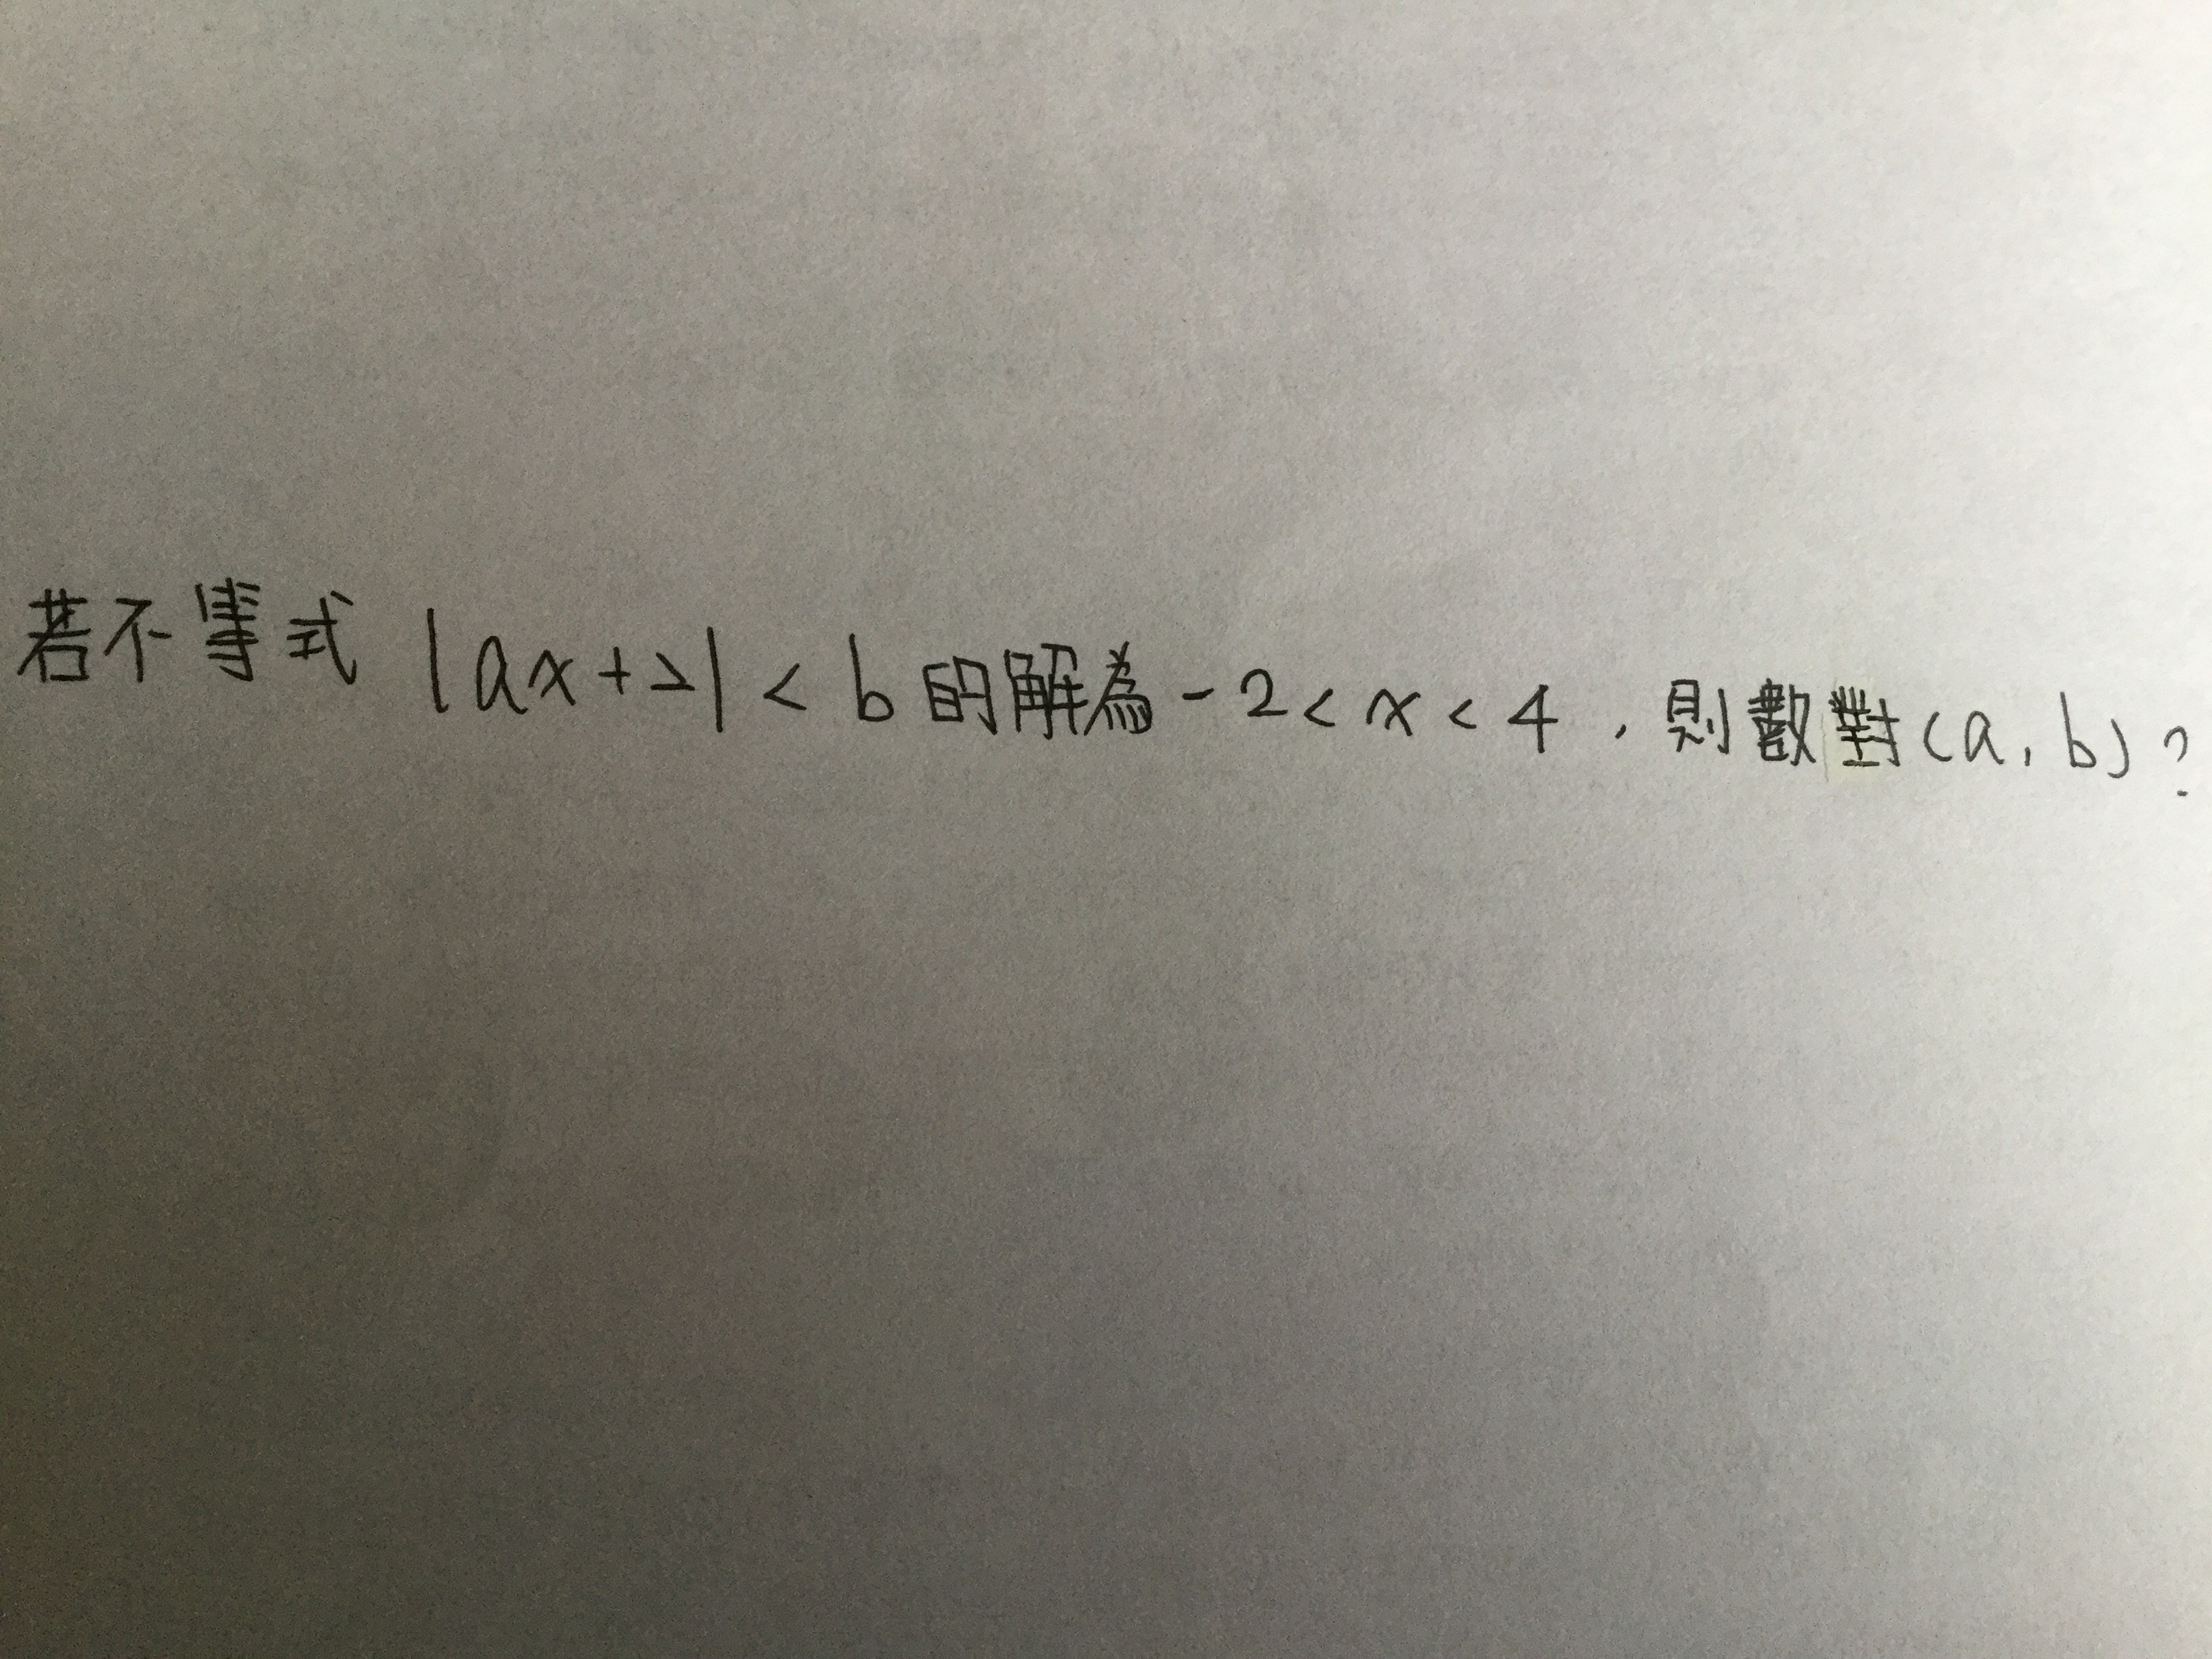 若不等式 |ax+2| < b 的解為 -2 < x < 4,則數對(a,b)?